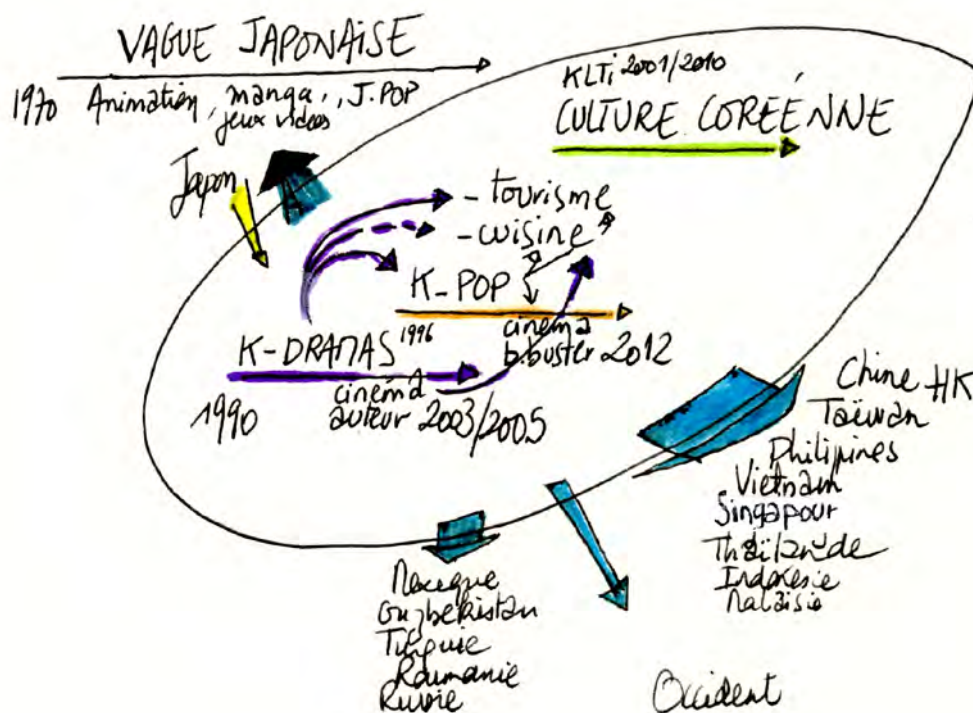 VAGUE JAPONAISE
1970 Animation, manga, J.POP
jeux vidéos
KLTi 2001/2010
CULTURE CORÉENNE
Japon
- tourisme
- cuisine
K-POP
K-DRAMAS 1996
cinéma
b.buster 2012
1990
cinéma
auteur 2003/2005
Chine HK
Taïwan
Philipines
Vietnam
Singapour
Thaïlande
Indonésie
Malaisie
Mexique
Ouzbékistan
Turquie
Roumanie
Russie
Occident